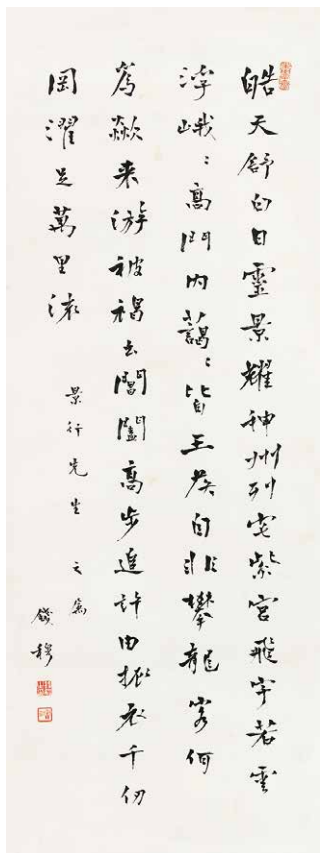 皓天舒白日靈景耀神州列宅紫宮飛宇若雲
浮峨〻高門內藹〻皆王侯自非攀龍客何
為歘来游被褐出閶闔高步追許由振衣千仞
岡濯足萬里流
景行先生 之屬
錢穆